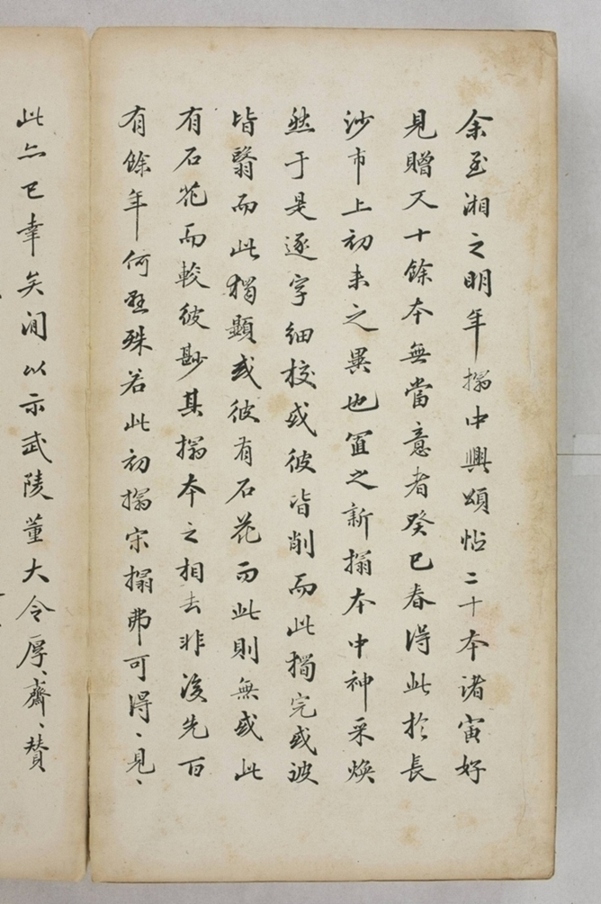 余至湘之明年搨中興頌帖二十本諸寅好
見贈又十餘本無當意者癸巳春得此於長
沙市上初未之異也置之新搨本中神采煥
然于是逐字細校或彼皆削而此獨完或彼
皆翳而此獨顯或彼有石花而此則無或此
有石花而較彼尠其搨本之相去非後先百
有餘年何至殊若此初搨宋搨弗可得、見、
此亦已幸矣間以示武陵董大令厚、齋、贊